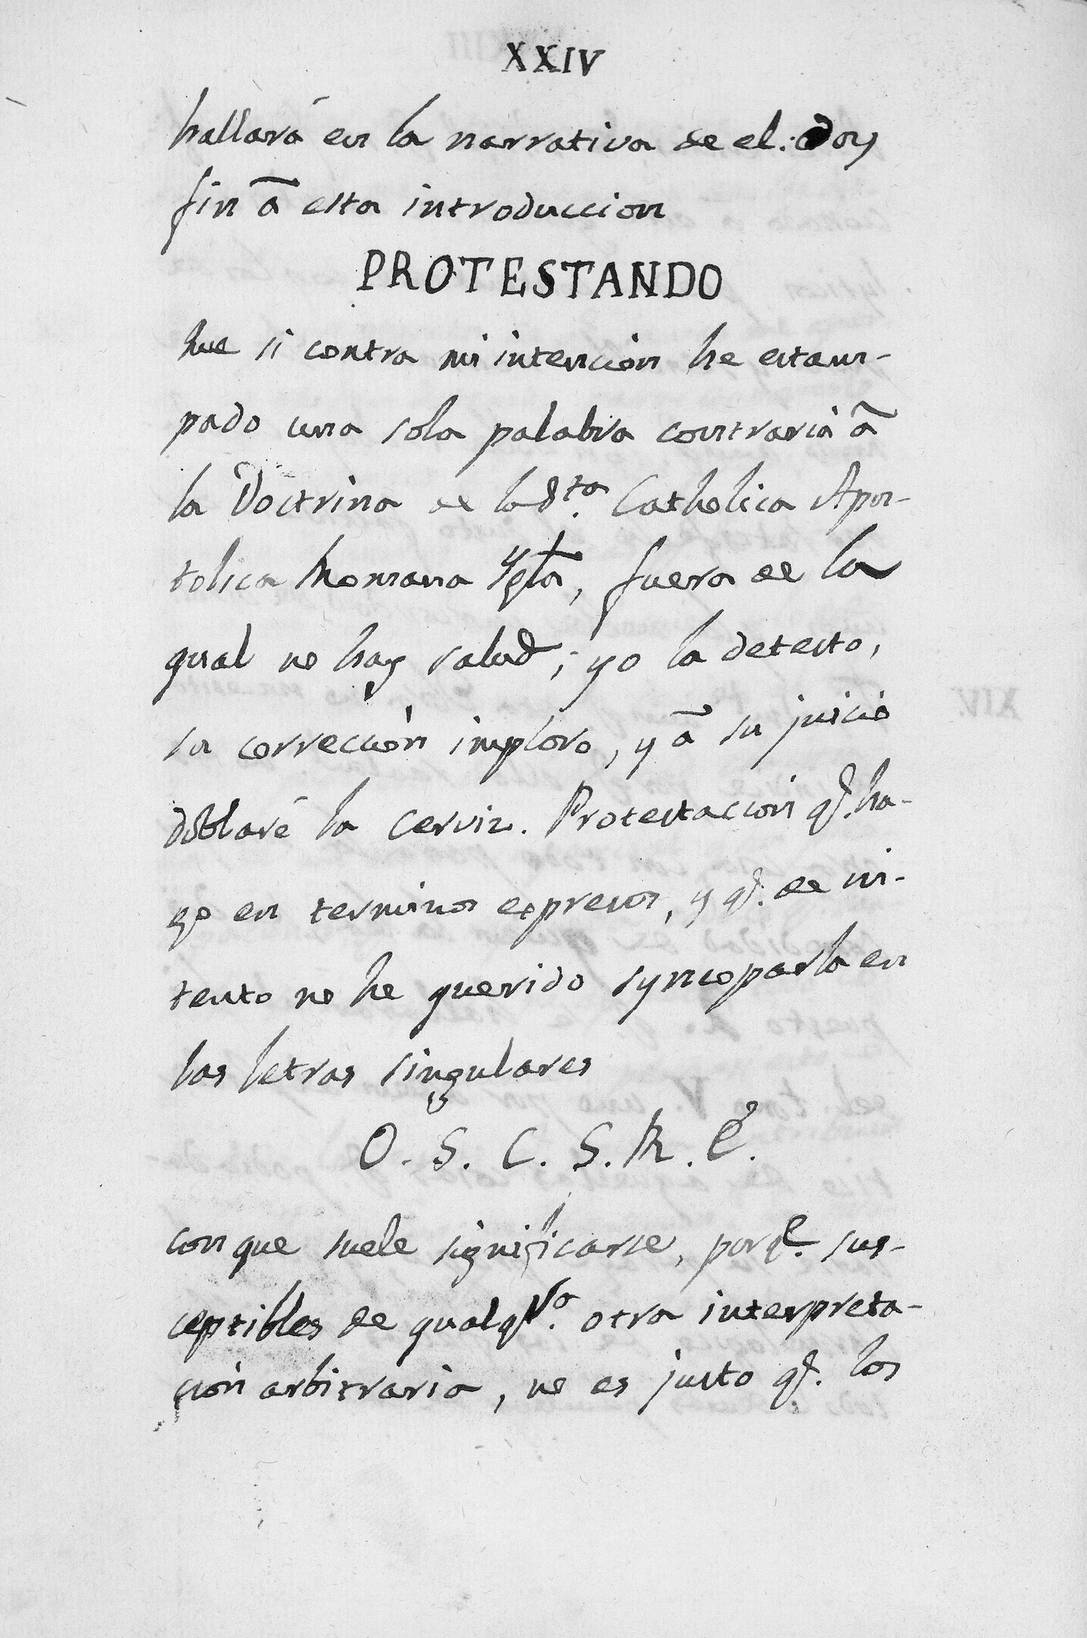 XXIV
hallará en la narrativa de el. doy
fin â esta introduccion
PROTESTANDO
que si contra mi intención he estam-
pado una sola palabra contraria â
la Doctrina de la Sta. Catholica Apos-
tolica Romana Ygla, fuera de la
qual no hay salud; yo la detesto,
su corrección imploro, y â su juicio
doblaré la cerviz. Protestación q. ha-
go en terminos expresos, y q. de in-
tento no he querido syncoparla en
las letras singulares
O. S. C. S. R. E.
con que suele significarse, porqe. sus-
ceptibles de qualqra. otra interpreta-
ción arbitraria, no es justo q. los